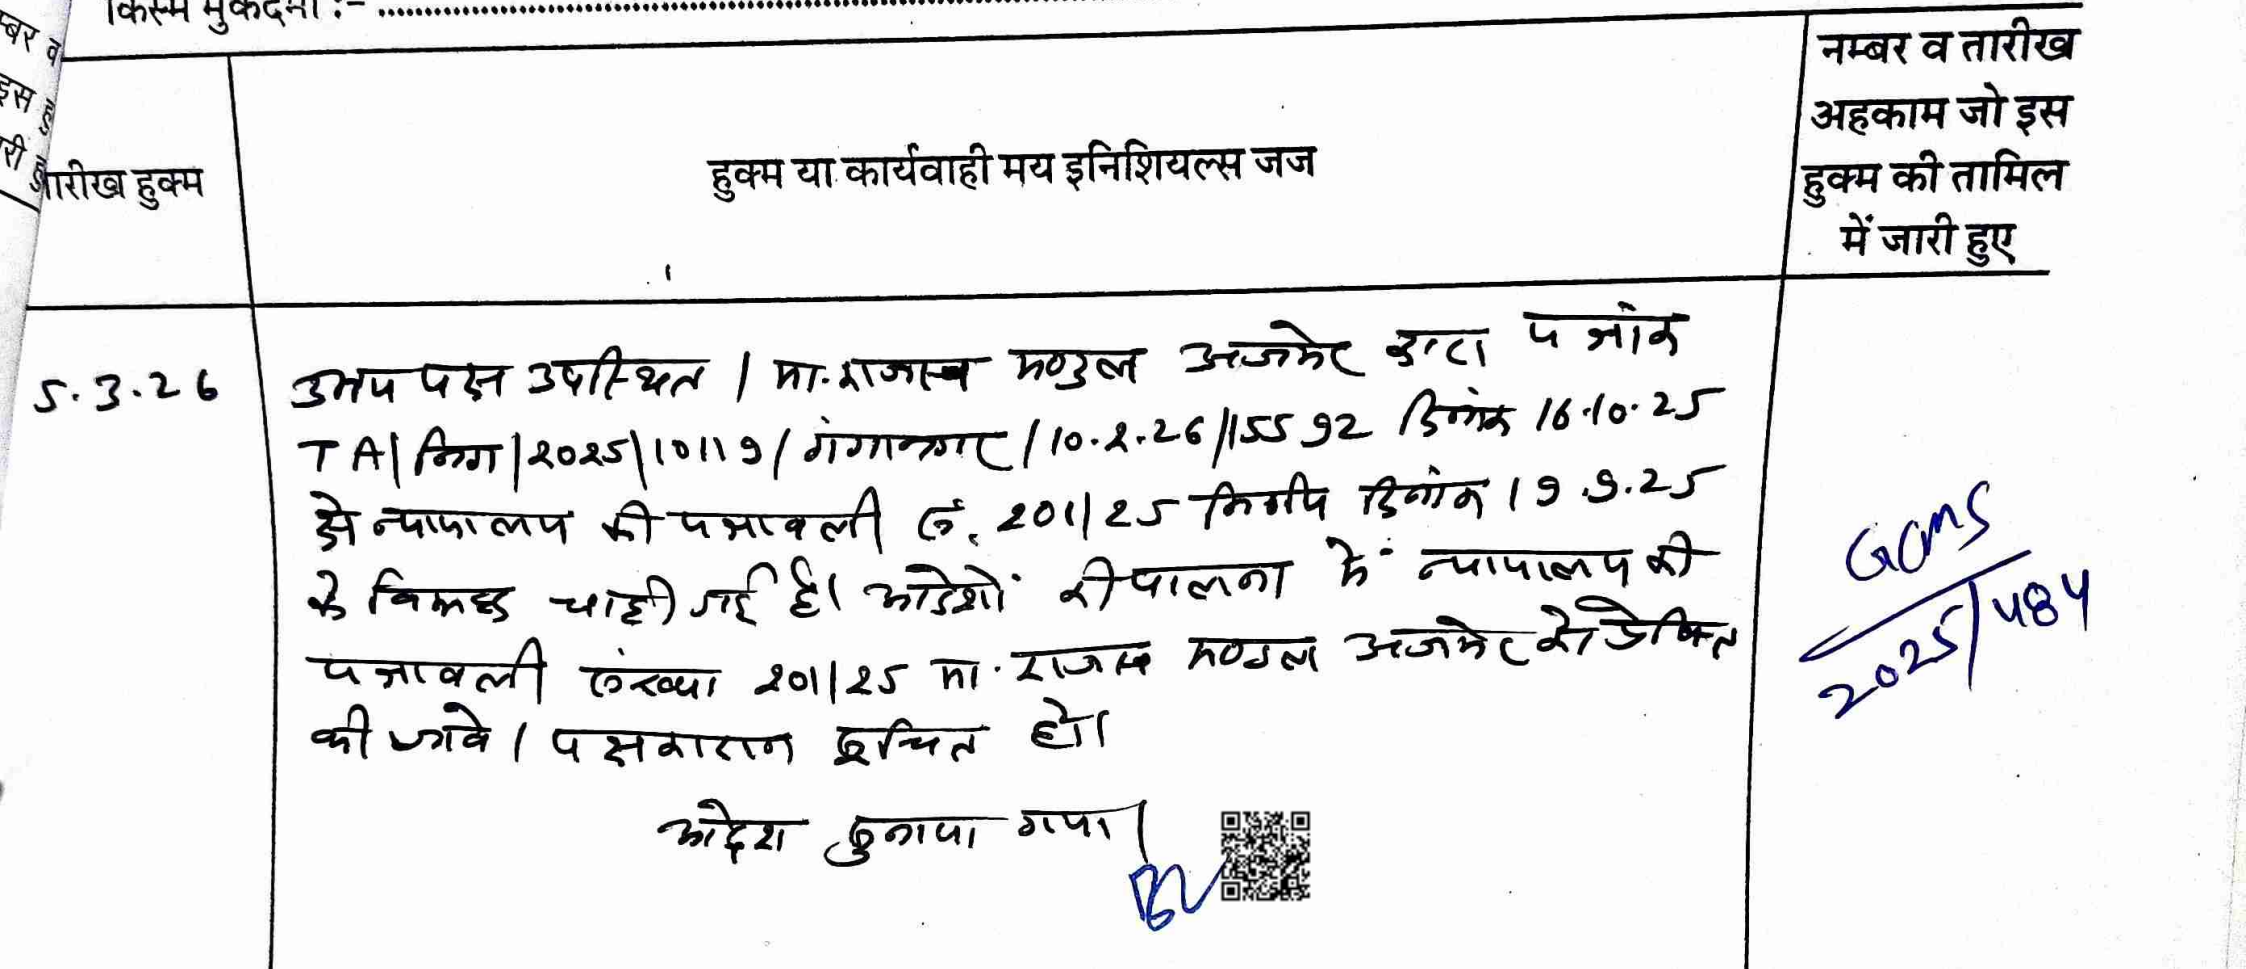 किस्म मुकदमा :-
म्बर व
इस हु
री हु
तारीख हुक्म
हुक्म या कार्यवाही मय इनिशियल्स जज
नम्बर व तारीख
अहकाम जो इस
हुक्म की तामिल
में जारी हुए
5.3.26
उभय पक्ष उपस्थित। मा. राजस्व मण्डल अजमेर द्वारा पत्रांक
TA/निग/2025/10119/गंगानगर/10.2.26/15592 दिनांक 16.10.25
से न्यायालय की पत्रावली सं. 201/25 निर्णय दिनांक 19.9.25
के विरूद्ध चाही गई है। आदेशों की पालना में न्यायालय की
पत्रावली संख्या 201/25 मा. राजस्व मण्डल अजमेर को प्रेषित
की जावे। पक्षकारान सूचित हो।
आदेश सुनाया गया।
GCMS
2025/484